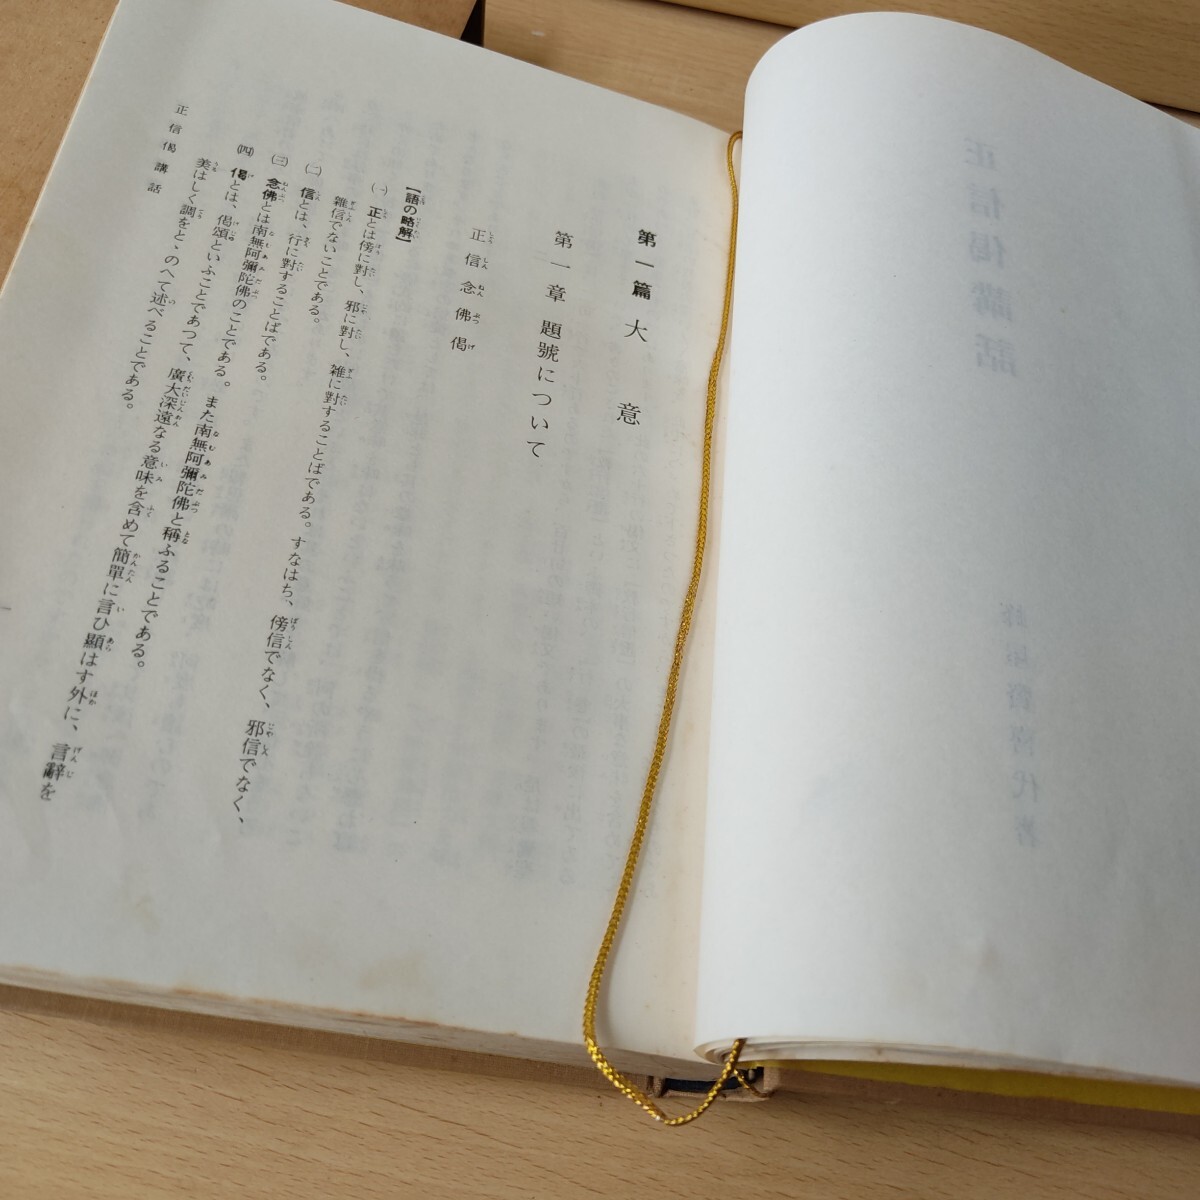 第一篇 大意
第一章 題號について
正信念佛偈
【語の略解】
(一) 正とは傍に對し、邪に對し、雑に對することばである。すなはち、傍信でなく、邪信でなく、
雑信でないことである。
(二) 信とは、行に對することばである。
(三) 念佛とは南無阿彌陀佛のことである。また南無阿彌陀佛と稱ふることである。
(四) 偈とは、偈頌といふことであつて、廣大深遠なる意味を含めて簡單に言ひ顯はす外に、言辭を
美はしく調をとゝのへて述べることである。
正信偈講話
一
正信偈講話